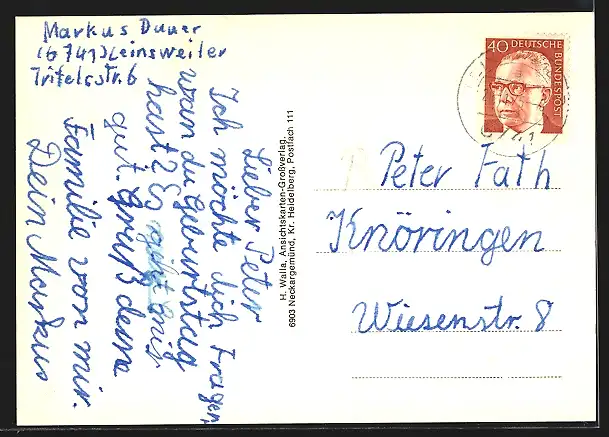 Markus Dauer
(6741) Leinsweiler
Trifelsstr. 6
Lieber Peter
Ich möchte dich Fragen
wan du Geburtstag
hast? Es geht mir
gut. Gruß deine
Familie von mir.
Dein Markus
H. Walla, Ansichtskarten-Großverlag,
6903 Neckargemünd, Kr. Heidelberg, Postfach 111
40 DEUTSCHE
BUNDESPOST
Peter Fath
Knöringen
Wiesenstr. 8